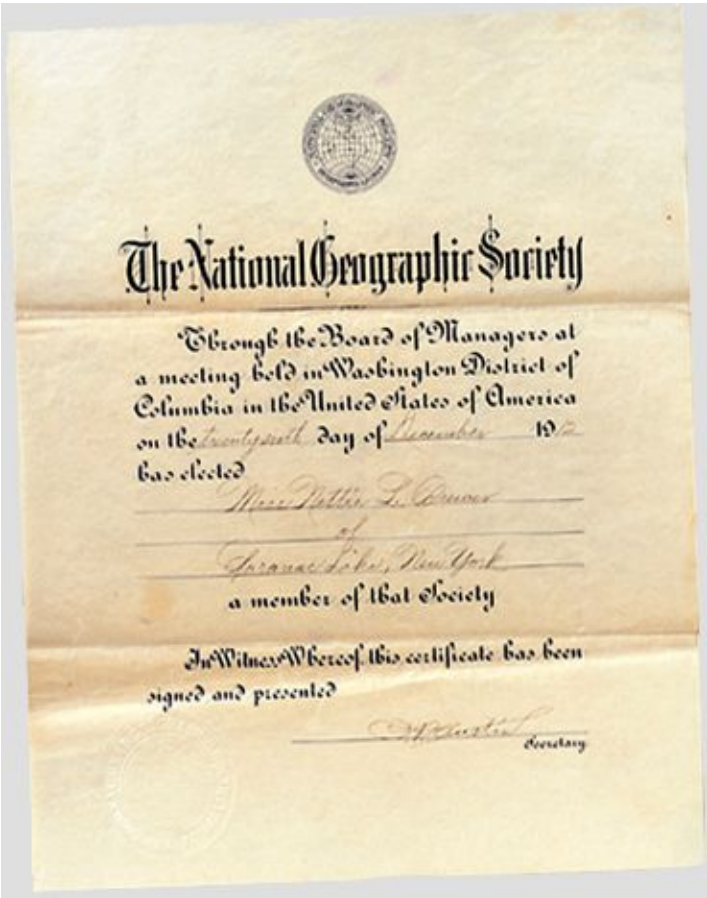 The National Geographic Society
Through the Board of Managers at
a meeting held in Washington District of
Columbia in the United States of America
on the twentysixth day of December 1912
has elected
Miss Nettie L.
of
Saranac Lake, New York
a member of that Society
In Witness Whereof this certificate has been
signed and presented
Secretary